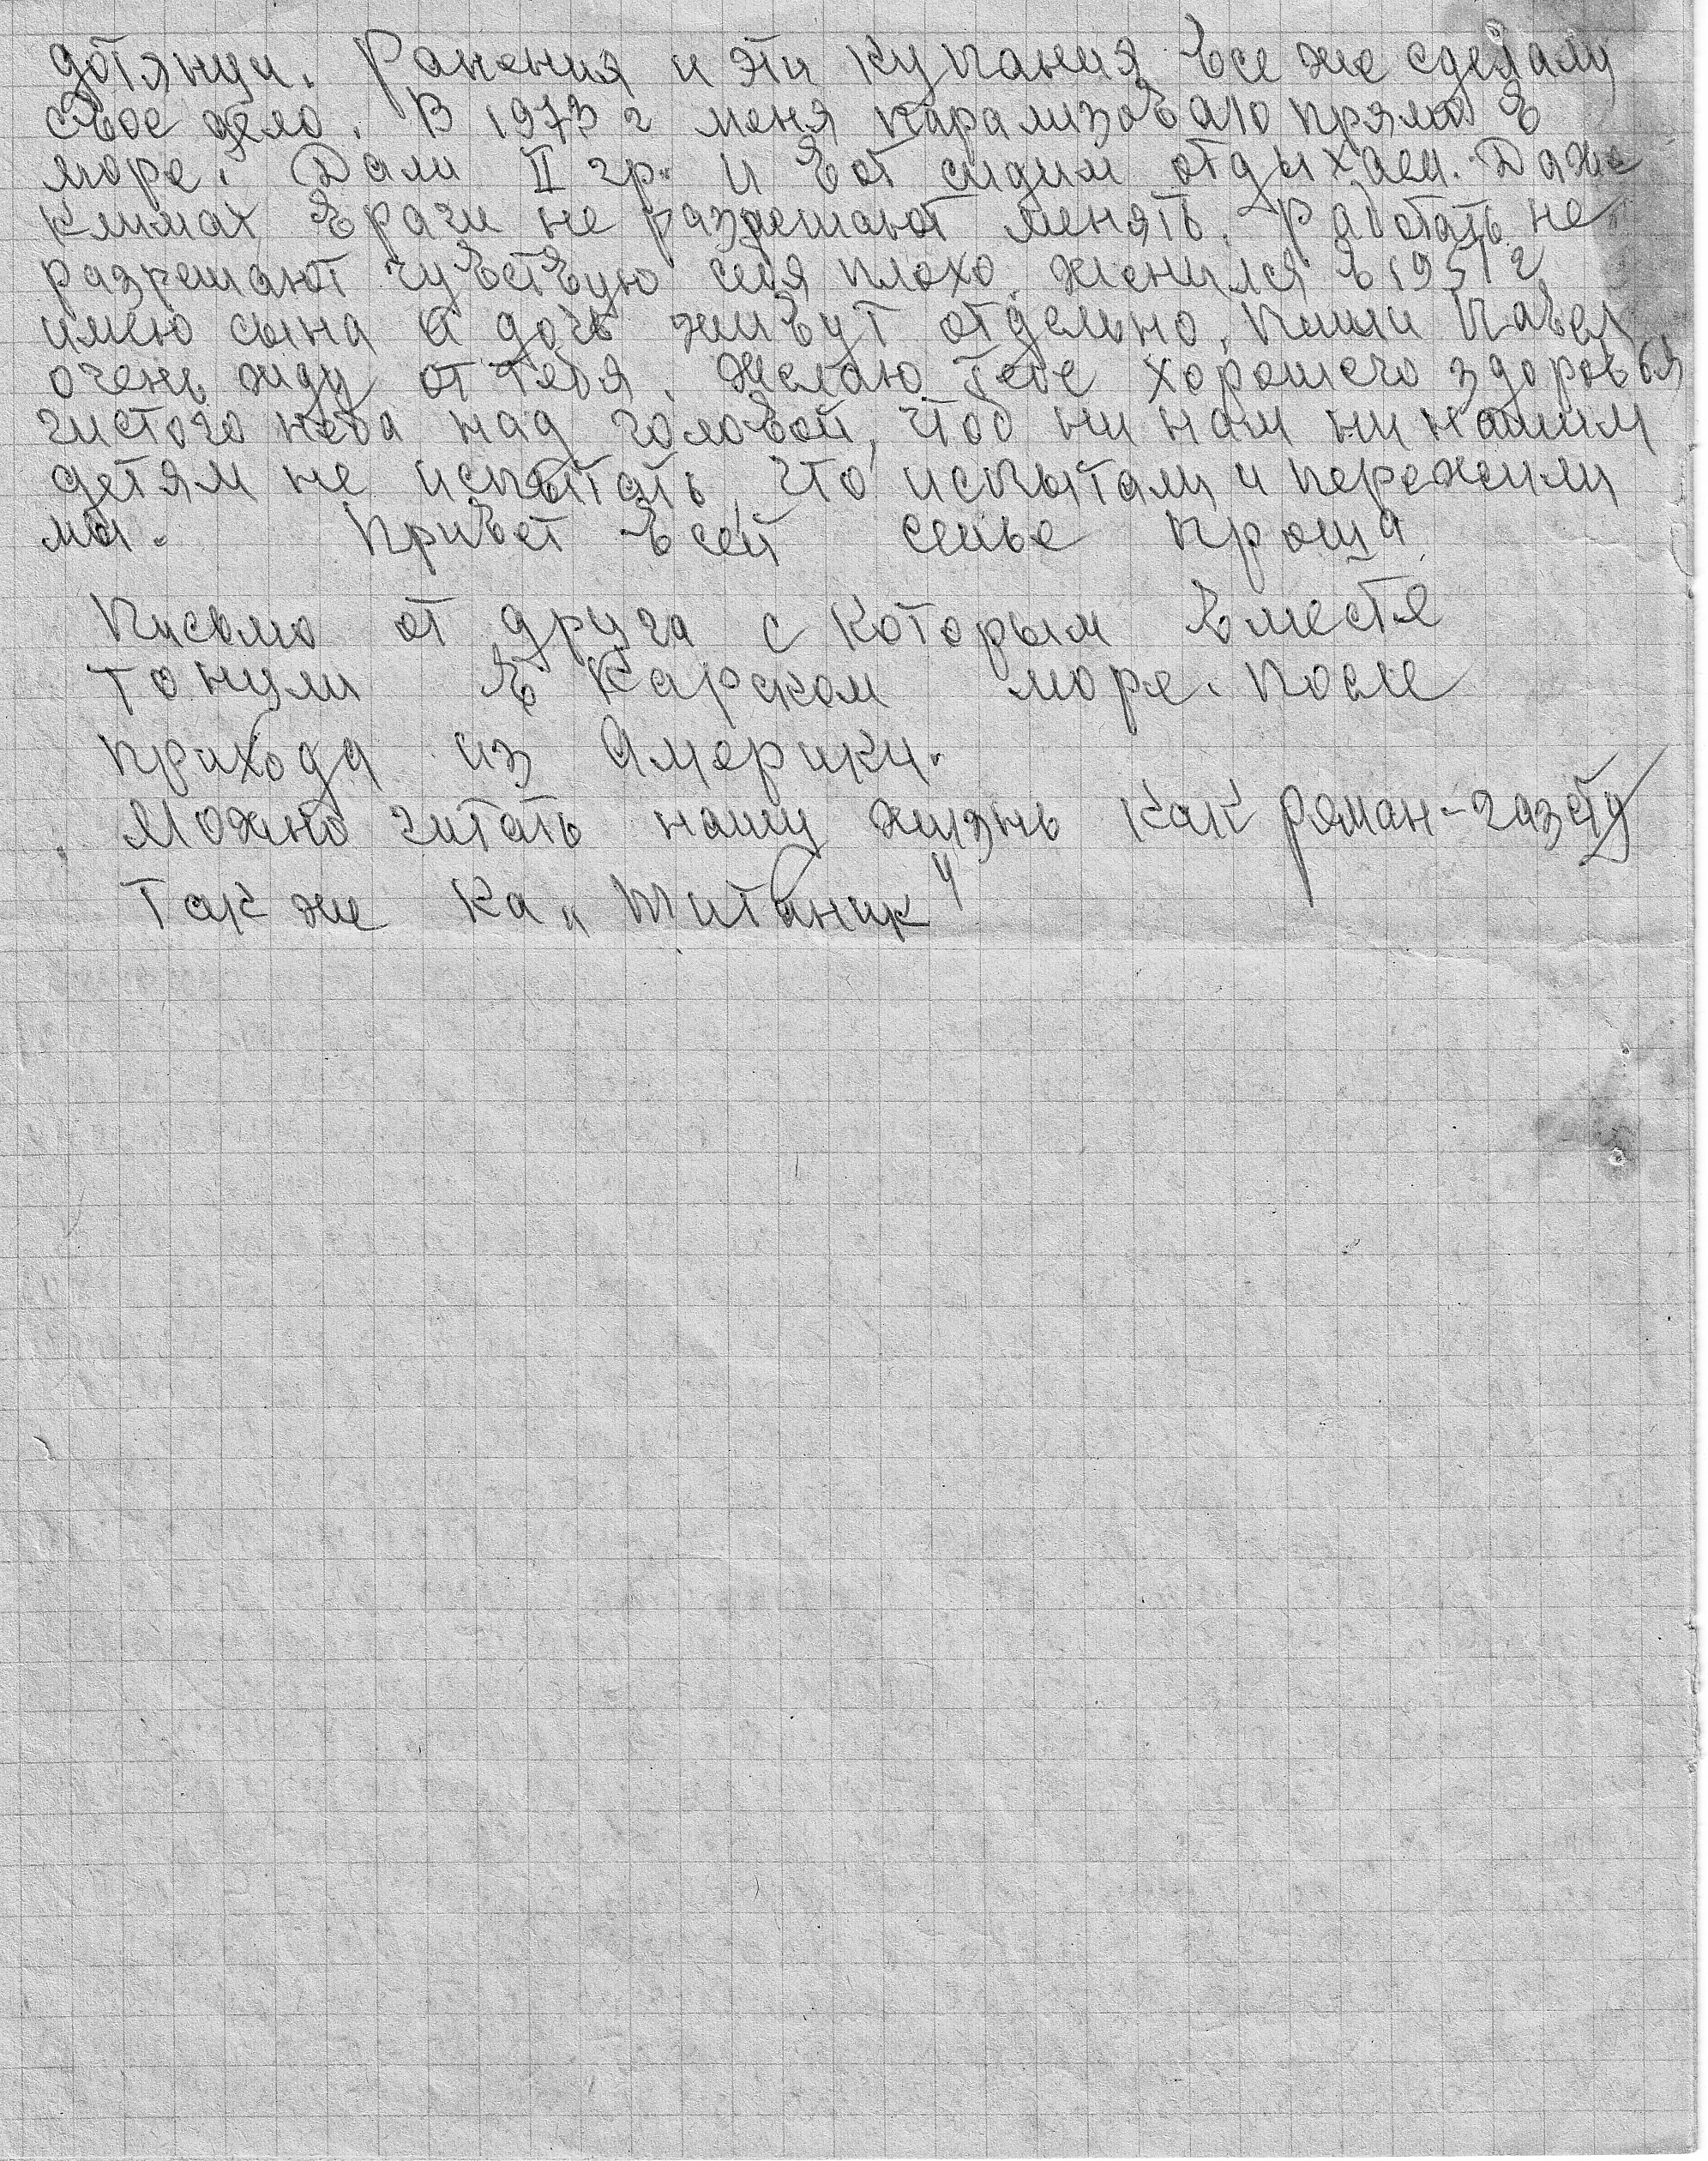 дотянул. Ранения и эти купания все же сделали
свое дело. В 1973 г меня парализовало прямо в
море. Дали II гр. и вот сидим отдыхаем. Даже
климат врачи не разрешают менять. Работать не
разрешают чувствую себя плохо. Женился в 1951 г
имею сына и дочь живут отдельно. Пиши Павел,
очень жду от тебя. Желаю тебе хорошего здоровья
чистого неба над головой, чтоб ни нам ни нашим
детям не испытать, что испытали и пережили
мы. Привет всей семье Проша
Письмо от друга с которым вместе
тонули в Карском море. После
прихода из Америки.
Можно читать нашу жизнь как роман-газету
так же ка „Титаник"